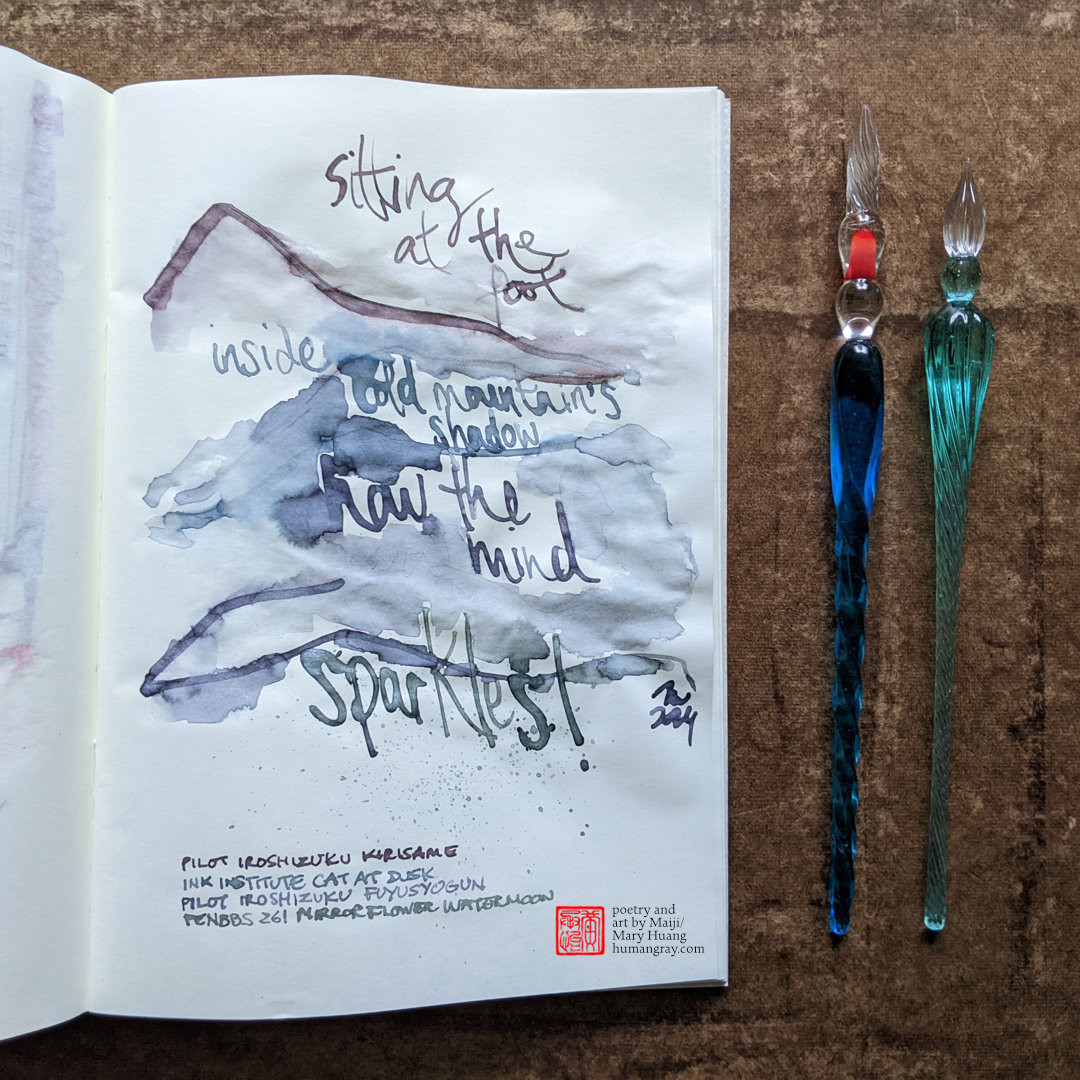 sitting
at the
foot
inside
cold mountain's
shadow
how the
mind
sparkles!
PILOT IROSHIZUKU KIRISAME
INK INSTITUTE CAT AT DUSK
PILOT IROSHIZUKU FUYUSYOGUN
PENBBS 261 MIRROR FLOWER WATER MOON
poetry and
art by Maiji/
Mary Huang
humangray.com